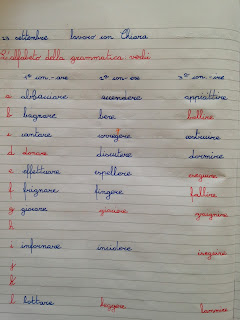 23 settembre lavoro con Chiara
L'alfabeto della grammatica verbi
1ª con. -are 2ª con. -ere 3ª con. -ire
a abbaiare accendere appiattire
b bagnare bere bollire
c cantare correggere costruire
d donare discutere dormire
e effettuare espellere eseguire
f frignare fingere fallire
g giocare giacere
h
i informare incidere inseguire
j
k
l lottare leggere